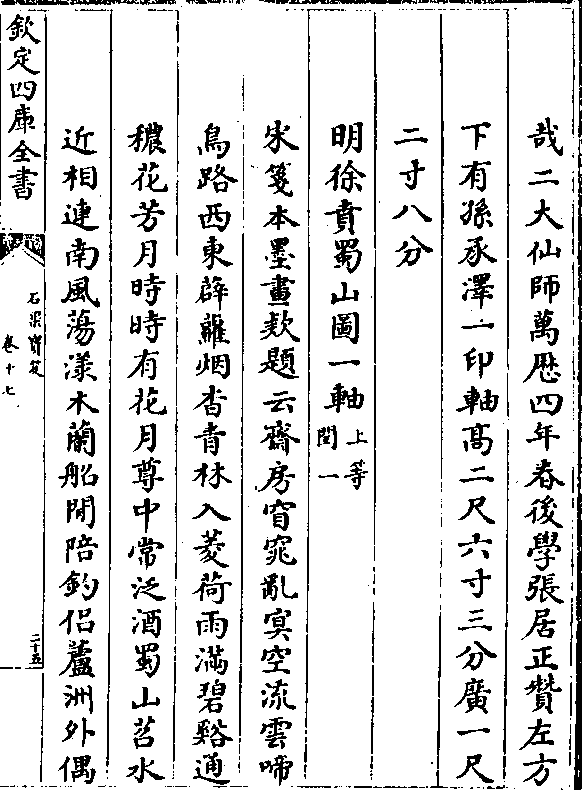 哉二大仙師萬厯四年春後學張居正贊左方
下有孫承澤一印軸髙二尺六寸三分廣一尺
二寸八分
明徐賁蜀山圖一軸上等閏一
宋箋本墨畫欵題云齋房窅窕亂㝠空流雲啼
鳥路西東薜蘿烟杳青林入菱荷雨滿碧谿通
穠花芳月時時有花月尊中常泛酒蜀山苕水
近相連南風蕩漾木蘭船閒陪釣侣蘆洲外偶
欽定四庫全書
石渠寳笈
卷十七
二十五